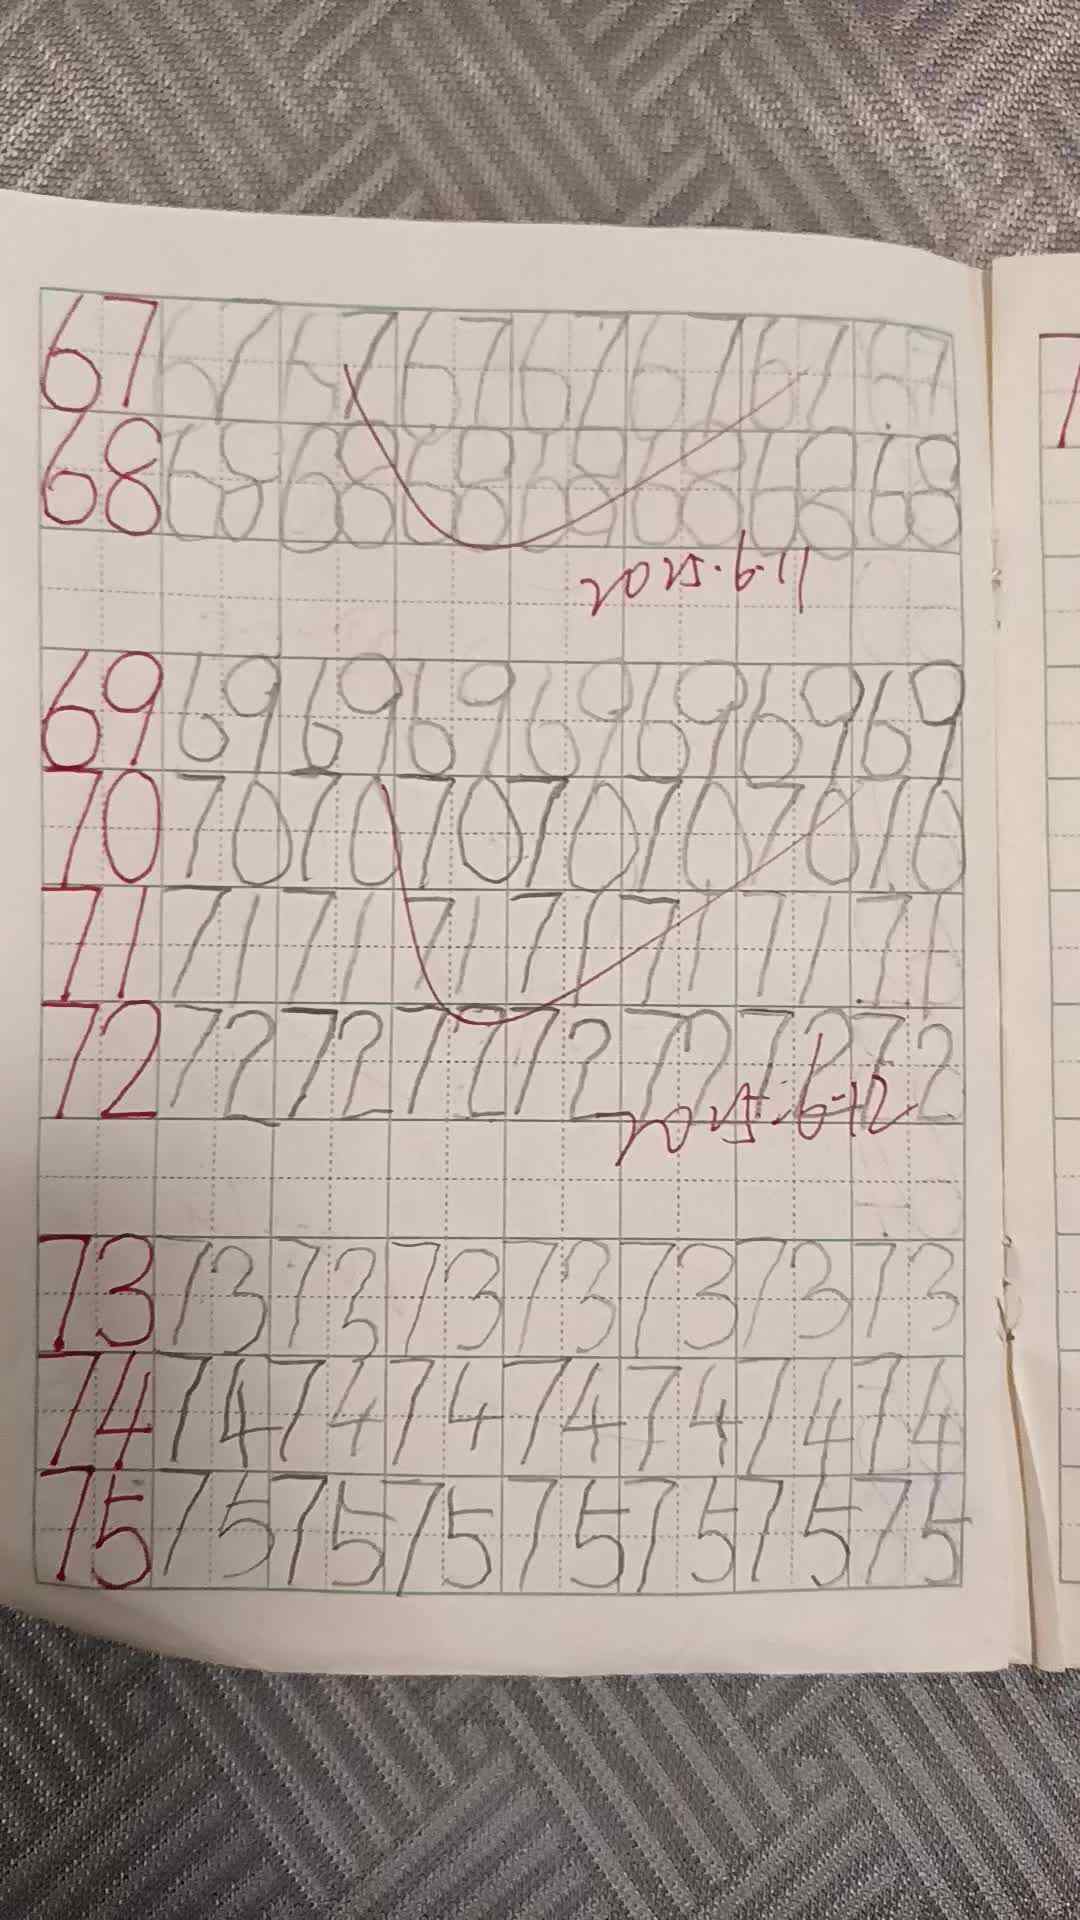 67 67 67 67 67 67 67 67
68 68 68 68 68 68 68 68
2025.6.11
69 69 69 69 69 69 69 69
70 70 70 70 70 70 70 70
71 71 71 71 71 71 71 71
72 72 72 72 72 72 72 72
2025.6.12
73 73 73 73 73 73 73 73
74 74 74 74 74 74 74 74
75 75 75 75 75 75 75 75